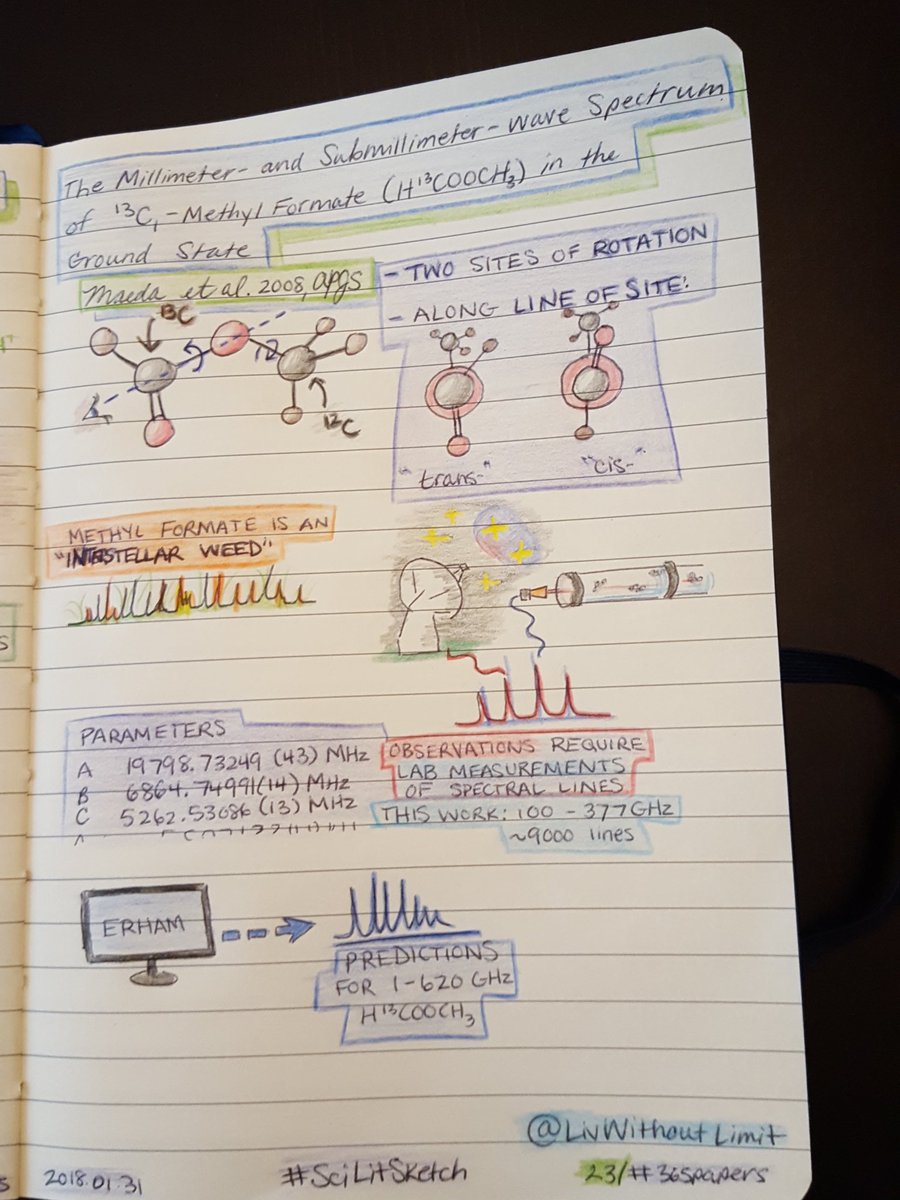 The Millimeter- and Submillimeter-wave Spectrum
of ¹³C₁-Methyl Formate (H¹³COOCH₃) in the
Ground State
Maeda et al. 2008, apjs
- TWO SITES OF ROTATION
- ALONG LINE OF SITE:
13C
12C
"trans-"
"cis-"
METHYL FORMATE IS AN
"INTERSTELLAR WEED"
PARAMETERS
A 19798.73249 (43) MHz
B 6864.74991(14) MHz
C 5262.53686 (13) MHz
OBSERVATIONS REQUIRE
LAB MEASUREMENTS
OF SPECTRAL LINES
THIS WORK: 100 - 377GHz
~9000 lines
ERHAM
PREDICTIONS
FOR 1-620 GHz
H¹³COOCH₃
@LivWithoutLimit
2018.01.31
#SciLitSketch
23/#365papers